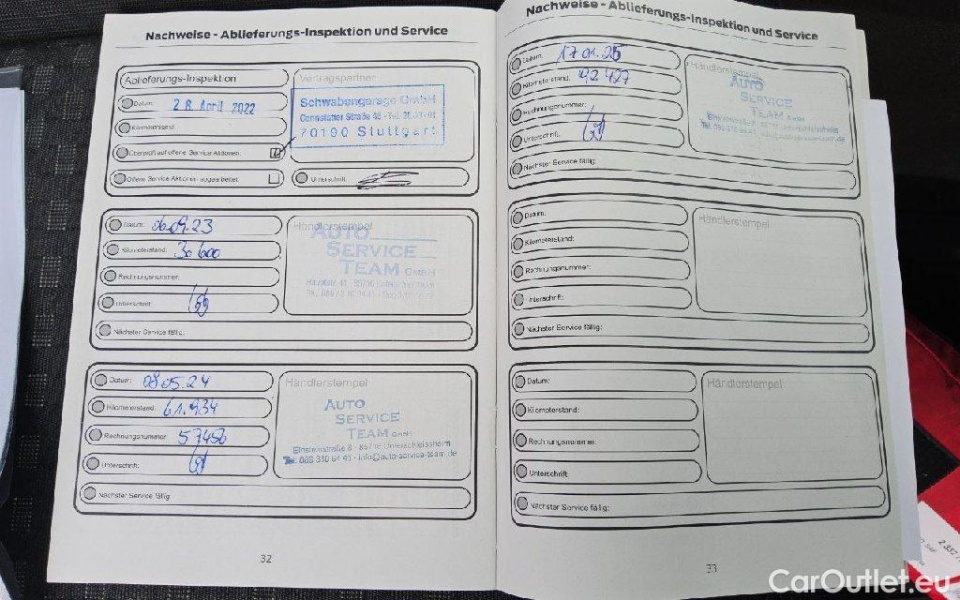 Nachweise - Ablieferungs-Inspektion und Service
Ablieferungs-Inspektion
Datum: 28. April 2022
Kilometerstand:
Überprüft auf offene Service Aktionen:
Offene Service Aktionen abgearbeitet:
Vertragspartner
Schwabengarage GmbH
Cannstatter Straße 46
70190 Stuttgart
Unterschrift:
Datum: 06.09.23
Kilometerstand: 30 600
Rechnungsnummer:
Unterschrift:
Nächster Service fällig:
Händlerstempel
AUTO
SERVICE
TEAM GMBH
Datum: 08.05.24
Kilometerstand: 61.934
Rechnungsnummer: 57456
Unterschrift:
Nächster Service fällig:
Händlerstempel
AUTO
SERVICE
TEAM GmbH
Einsteinstraße 8 - 85716 Unterschleissheim
Tel. 089 310 94 41 - info@auto-service-team.de
32
Nachweise - Ablieferungs-Inspektion und Service
Datum: 17.01.25
Kilometerstand: 92 427
Rechnungsnummer:
Unterschrift:
Nächster Service fällig:
Händlerstempel
AUTO
SERVICE
TEAM GmbH
Datum:
Kilometerstand:
Rechnungsnummer:
Unterschrift:
Nächster Service fällig:
Händlerstempel
Datum:
Kilometerstand:
Rechnungsnummer:
Unterschrift:
Nächster Service fällig:
Händlerstempel
33
CarOutlet.eu